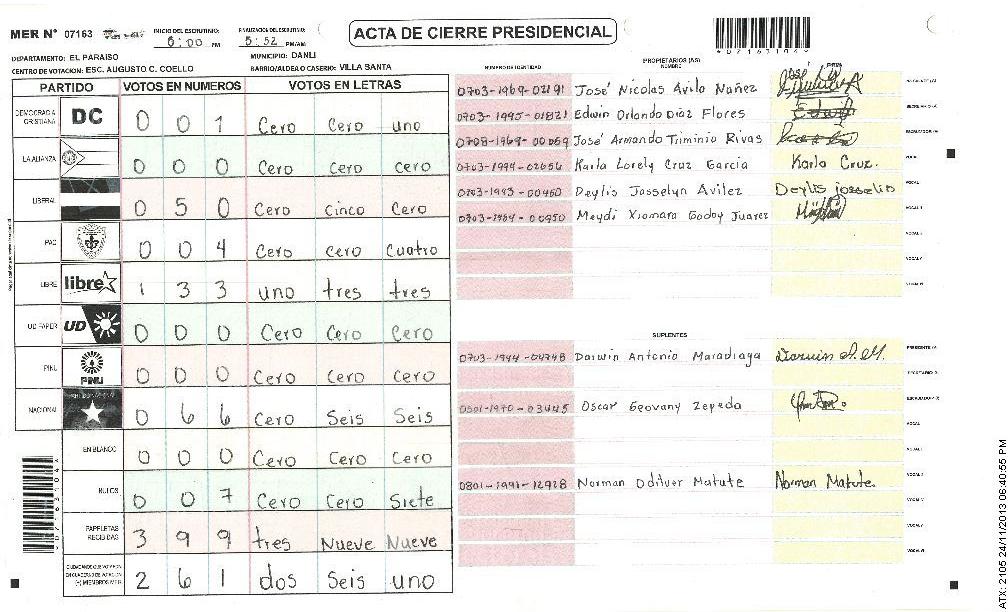 MER N° 07163
INICIO DEL ESCRUTINIO: 5:00 PM
FINALIZACION DEL ESCRUTINIO: 5:52 PM/AM
ACTA DE CIERRE PRESIDENCIAL
DEPARTAMENTO: EL PARAISO
MUNICIPIO: DANLI
CENTRO DE VOTACION: ESC. AUGUSTO C. COELLO
BARRIO/ALDEA O CASERIO: VILLA SANTA
PARTIDO VOTOS EN NUMEROS VOTOS EN LETRAS
DEMOCRACIA CRISTIANA DC 0 0 1 Cero Cero uno
LA ALIANZA 0 0 0 Cero Cero Cero
LIBERAL 0 5 0 Cero Cinco Cero
PAC 0 0 4 Cero Cero Cuatro
LIBRE libre 1 3 3 uno tres tres
UD FAPER UD 0 0 0 Cero Cero Cero
PINU PINU 0 0 0 Cero Cero Cero
NACIONAL 0 6 6 Cero Seis Seis
EN BLANCO 0 0 0 Cero Cero Cero
NULOS 0 0 7 Cero Cero Siete
PAPELETAS RECIBIDAS 3 9 9 tres Nueve Nueve
CIUDADANOS QUE VOTARON EN CUADERNO DE VOTACION (+) MIEMBROS MER 2 6 1 dos Seis uno
PROPIETARIOS (AS)
NUMERO DE IDENTIDAD NOMBRE FIRMA
0703-1969-02191 José Nicolas Avilo Nuñez
0703-1995-01821 Edwin Orlando Diaz Flores Edwin
0708-1969-00059 José Armando Triminio Rivas
0703-1994-02656 Karla Lorely Cruz Garcia Karla Cruz.
0703-1993-00460 Deylis Josselyn Avilez Deylis josselin
0703-1964-00950 Meydi Xiomara Godoy Juarez
SUPLENTES
0703-1944-04748 Darwin Antonio Maradiaga Darwin A. M.
0801-1970-03445 Oscar Geovany Zepeda
0801-1991-12928 Norman Odilver Matute Norman Matute.
ATX: 2105 24/11/2013 06:40:55 PM